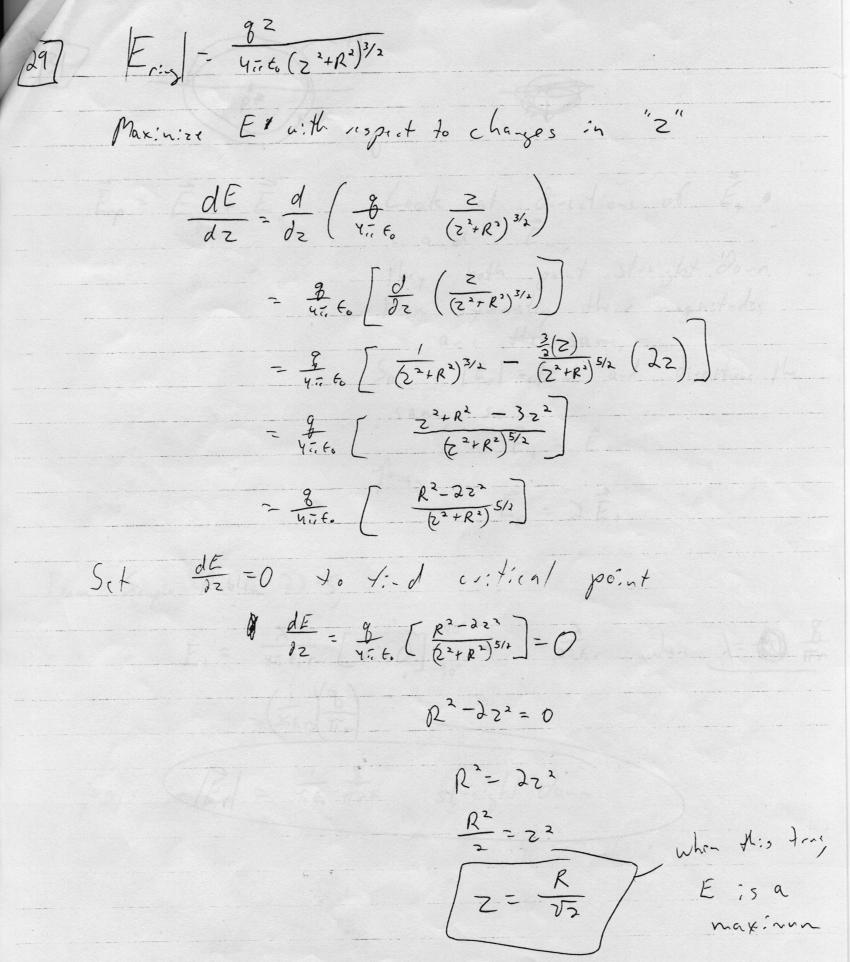 29 |E_ring| = qz / 4πε₀(z²+R²)^3/2
Maximize E with respect to changes in "z"
dE/dz = d/dz ( q/4πε₀ z/(z²+R²)^3/2 )
= q/4πε₀ [ d/dz ( z/(z²+R²)^3/2 ) ]
= q/4πε₀ [ 1/(z²+R²)^3/2 − 3/2(z)/(z²+R²)^5/2 (2z) ]
= q/4πε₀ [ z²+R² − 3z² / (z²+R²)^5/2 ]
= q/4πε₀ [ R²−2z² / (z²+R²)^5/2 ]
Set dE/dz = 0 to find critical point
dE/dz = q/4πε₀ [ R²−2z² / (z²+R²)^5/2 ] = 0
R²−2z² = 0
R² = 2z²
R²/2 = z²
z = R/√2
when this true,
E is a
maximum